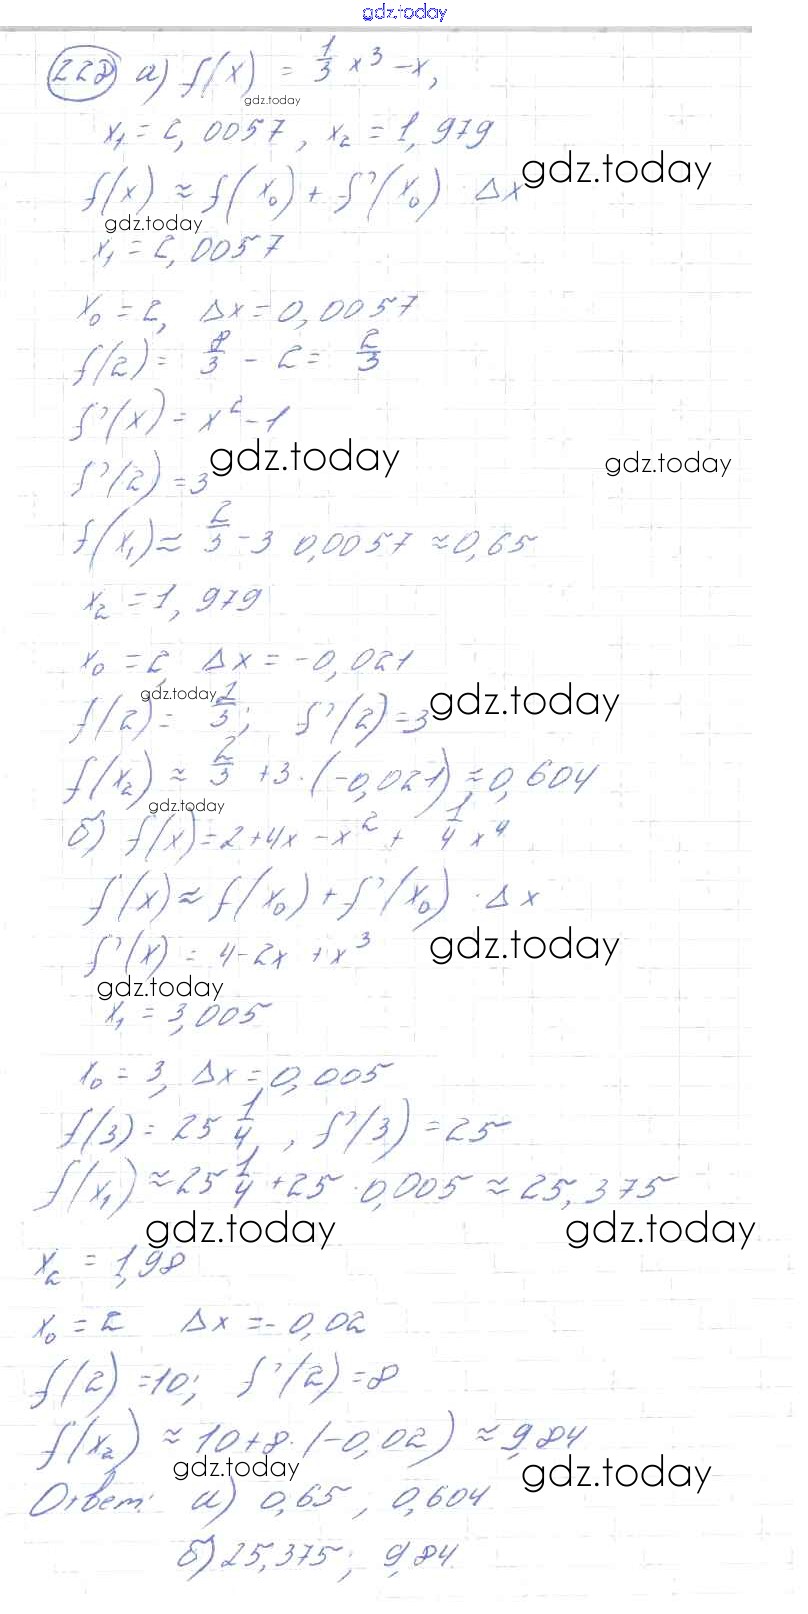 gdz.today
228 а) f(x) = 1/3 x³ - x,
gdz.today
x₁ = 2,0057, x₂ = 1,979
gdz.today
f(x) ≈ f(x₀) + f'(x₀) · Δx
gdz.today
x₁ = 2,0057
x₀ = 2, Δx = 0,0057
f(2) = 8/3 - 2 = 2/3
f'(x) = x² - 1
gdz.today gdz.today
f'(2) = 3
f(x₁) ≈ 2/3 - 3 0,0057 ≈ 0,65
x₂ = 1,979
x₀ = 2 Δx = -0,021
gdz.today gdz.today
f(2) = 1/3; f'(2) = 3
f(x₂) ≈ 2/3 + 3·(-0,021) ≈ 0,604
gdz.today
б) f(x) = 2 + 4x - x² + 1/4 x⁴
f(x) ≈ f(x₀) + f'(x₀) · Δx
gdz.today
f'(x) = 4 - 2x + x³
gdz.today
x₁ = 3,005
x₀ = 3, Δx = 0,005
f(3) = 25 1/4, f'(3) = 25
f(x₁) ≈ 25 1/4 + 25 · 0,005 ≈ 25,375
gdz.today gdz.today
x₂ = 1,98
x₀ = 2 Δx = -0,02
f(2) = 10; f'(2) = 8
f(x₂) ≈ 10 + 8·(-0,02) ≈ 9,84
gdz.today gdz.today
Ответ: а) 0,65, 0,604
б) 25,375; 9,84